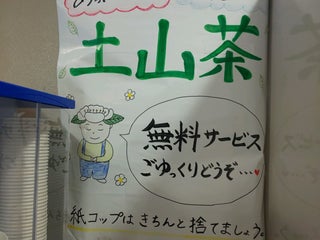 土山茶
無料サービス
ごゆっくりどうぞ…♥
紙コップはきちんと捨てましょう。